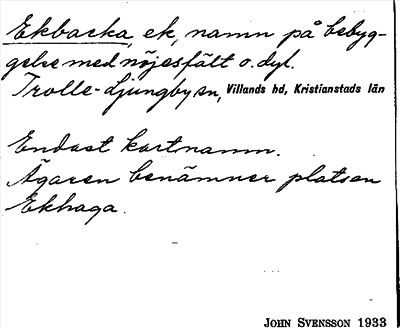 Ekbacka, ek, namn på bebyg-
gelse med nöjesfält o. dyl.
Trolle-Ljungby sn, Villands hd, Kristianstads län
Endast kartnamn.
Ägaren benämner platsen
Ekhaga.
JOHN SVENSSON 1933